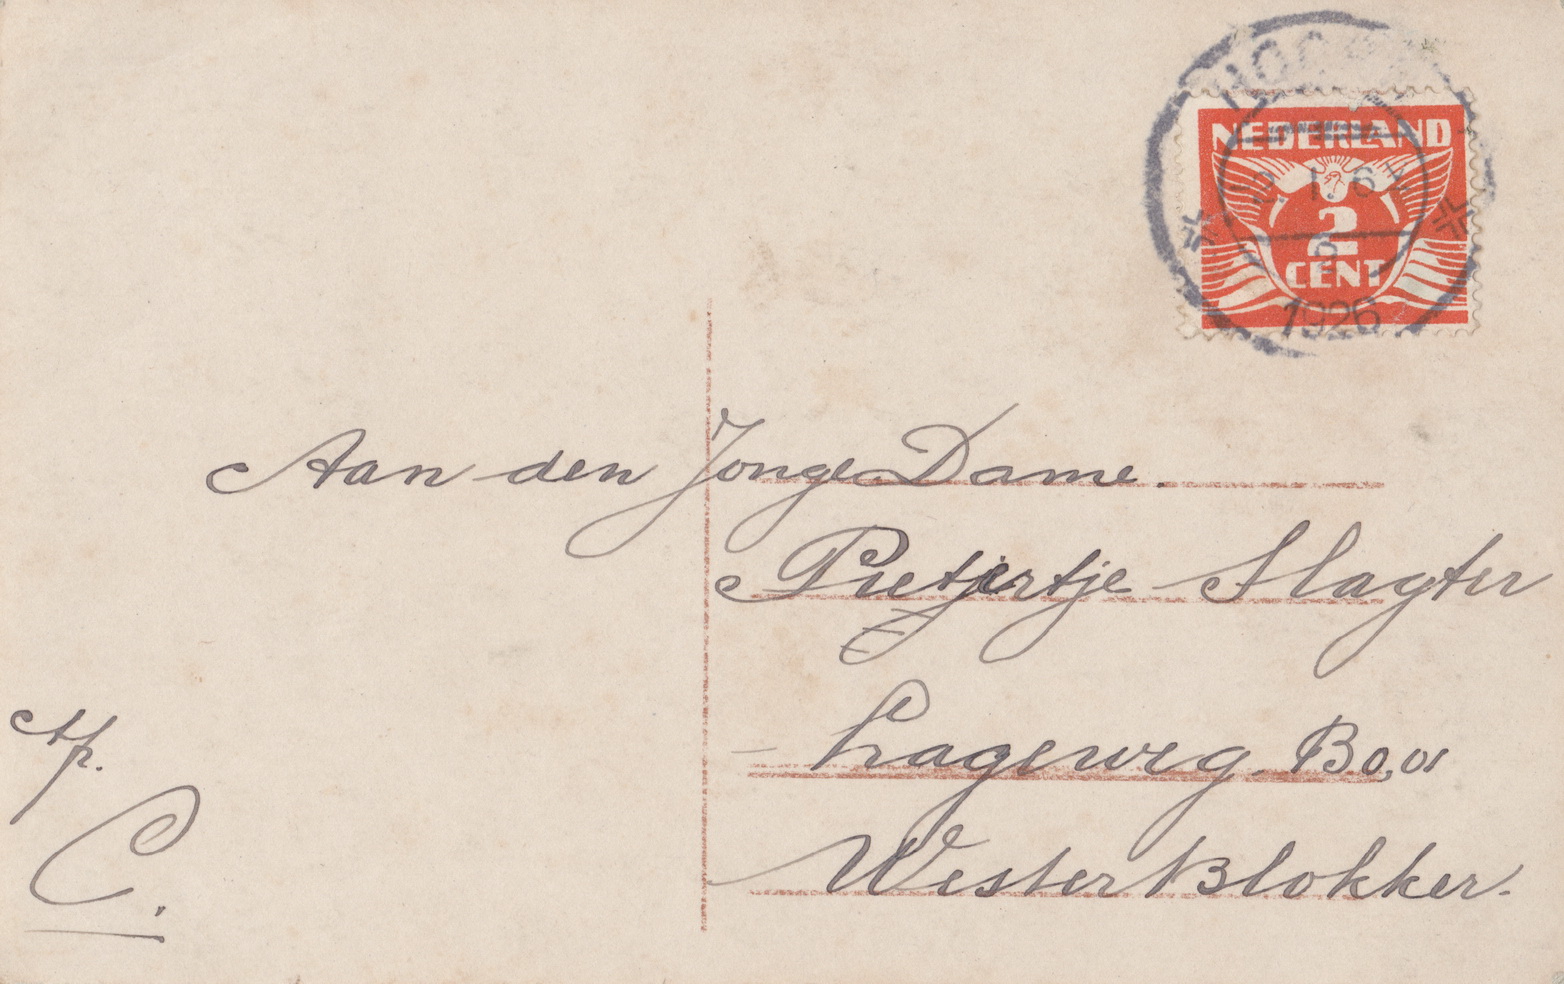 NEDERLAND
2
CENT
1926
Aan den Jonge Dame.
Pietertje Slagter
Lageweg. B
WesterBlokker.
C.